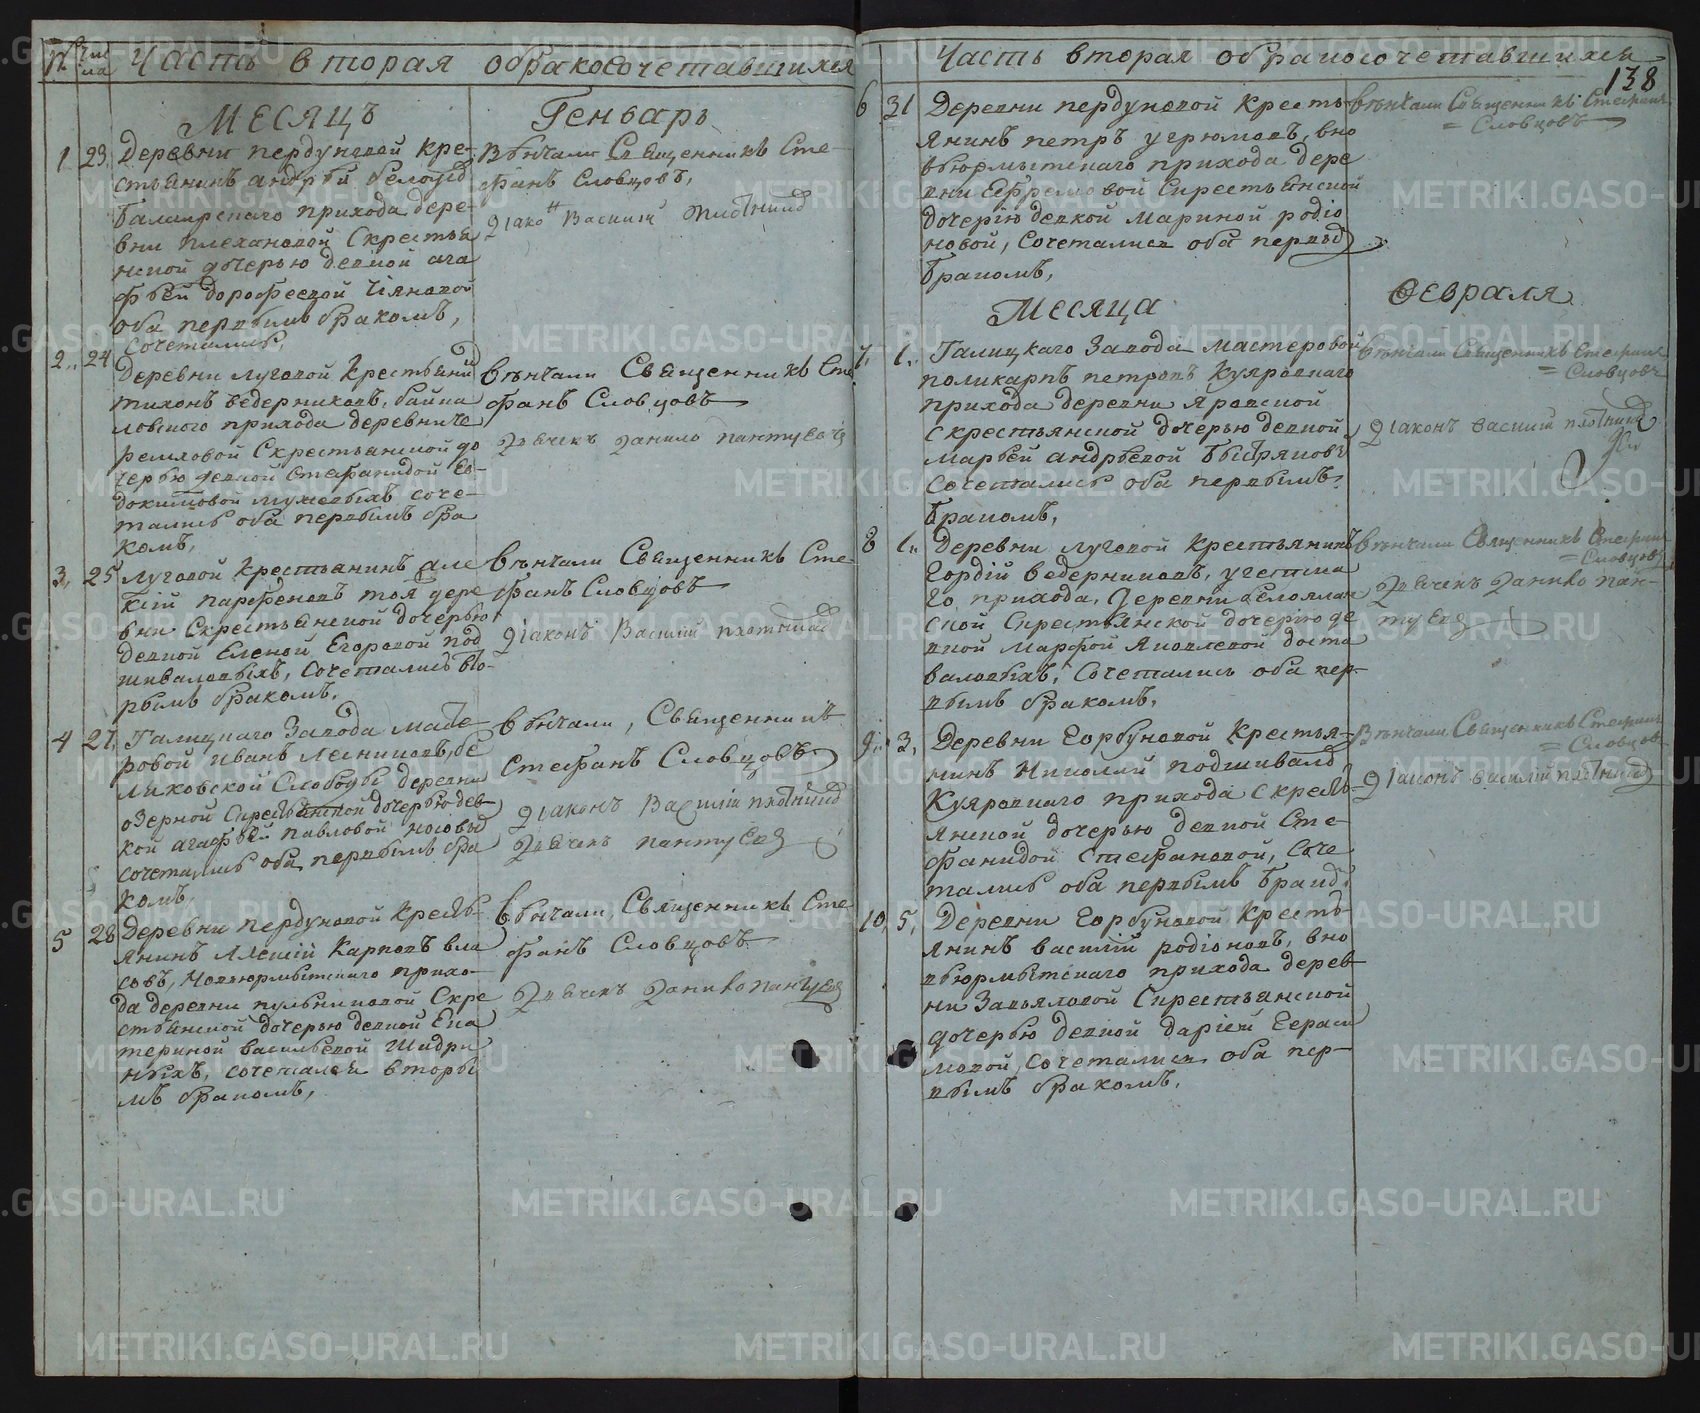 № Чи
сла
Часть вторая обракосочетавшихся
Месяцъ Генварь
1 23, Деревни пердуновой кре-
стьянинъ андрѣй белоусъ
прихода дере-
вни плехановой Скрестья
нской дочерью девкой ага
фьей дорофеевой
оба первымъ бракомъ,
сочетались,
Вѣнчали Священникъ Сте-
фанъ Словцовъ,
Василий
2,, 24 Деревни луговой крестьянинъ
тихонъ ведерниковъ,
прихода деревни че
ремховой Скрестьянской до
черью девкой стефанидой Ев-
докимовой соче-
тались оба первымъ бра
комъ,
вѣнчали Священникъ Сте
фанъ Словцовъ
Данило пантуевъ
3, 25 Луговой крестьянинъ але
ксій парфеновъ тоя дере
вни Скрестьянской дочерью
девкой Еленой Егоровой под
шиваловыхъ, сочетались вто-
рымъ бракомъ.
вѣнчали Священникъ Сте-
фанъ Словцовъ
діаконъ Василий
4 27, Галицкаго Завода масте-
ровой иванъ
Слободы деревни
озерной Скрестьянской дочерью дев
кой агафьей павловой
сочетались оба первымъ бра
комъ,
вѣнчали, Священникъ
Стефанъ Словцовъ
діаконъ Василій
пантуевъ
5 28 Деревни пердуновой крестья
янинъ Алексій карповъ вла
совъ, Новоюрмытскаго прихо-
да деревни Скре
стьянской дочерью девкой Ека
териной васильевой Шадри
ныхъ, сочетался вторы
мъ бракомъ,
Вѣнчали, Священникъ Сте
фанъ Словцовъ
Данило пантуевъ
Часть вторая обракосочетавшихся
138
6 31 Деревни пердуновой кресть
янинъ петръ угрюмовъ, вно
вьюрмытскаго прихода дере
вни Ефремовой Скрестьянской
дочерію девкой Мариной родіо
новой, сочетались оба первым
бракомъ,
вѣнчали Священникъ Стефанъ
= Словцовъ
Месяца Февраля
7, 1,, Галицкаго Завода мастеровой
поликарпъ петровъ Куяровскаго
прихода деревни яровской
скрестьянской дочерью девкой
марьей андрѣевой
сочетались оба первымъ
бракомъ,
вѣнчали Священникъ Стефанъ
= Словцовъ
діаконъ василий
8 1,, Деревни луговой крестьянинъ
гордій ведерниковъ,
го прихода, деревни
ской Скрестьянской дочерію де
вкой марфой яковлевой доста
валовыхъ, сочетались оба пер-
вымъ бракомъ,
вѣнчали Священникъ Стефанъ
= Словцовъ
Данило пан-
туевъ
9,, 3, Деревни горбуновой крестья-
нинъ Николай подшиваловъ
Куяровскаго прихода скресть
янской дочерью девкой Сте-
фанидой стефановой, соче
тались оба первымъ браком
Вѣнчали Священникъ Стефанъ
= Словцовъ
діаконъ василій
10, 5, Деревни горбуновой кресть-
янинъ василій родіоновъ, вно
вьюрмытскаго прихода дерев
ни Завьяловой Скрестьянской
дочерью девкой дарьей гераси
мовой, сочетались оба пер-
вымъ бракомъ,